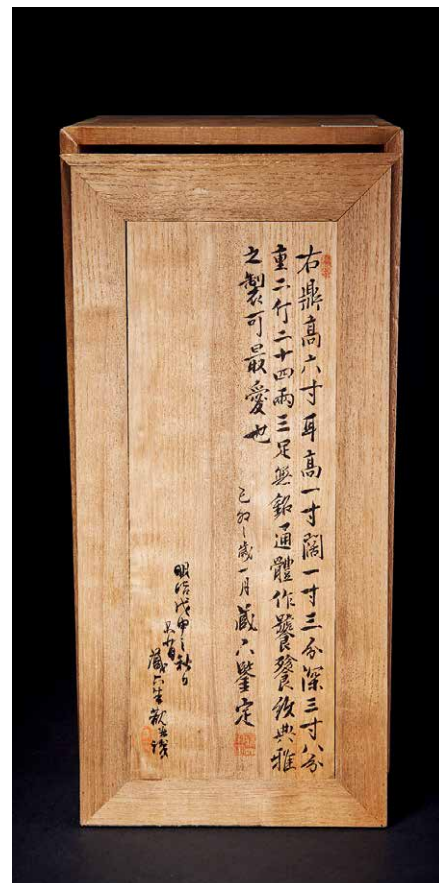 右鼎高六寸耳高一寸闊一寸三分深三寸八分
重二斤二十四兩三足無銘通體作饕餮紋典雅
之製可最愛也
己卯之歲一月 藏六鑒定
明治戊申之秋日
藏六生觀並識